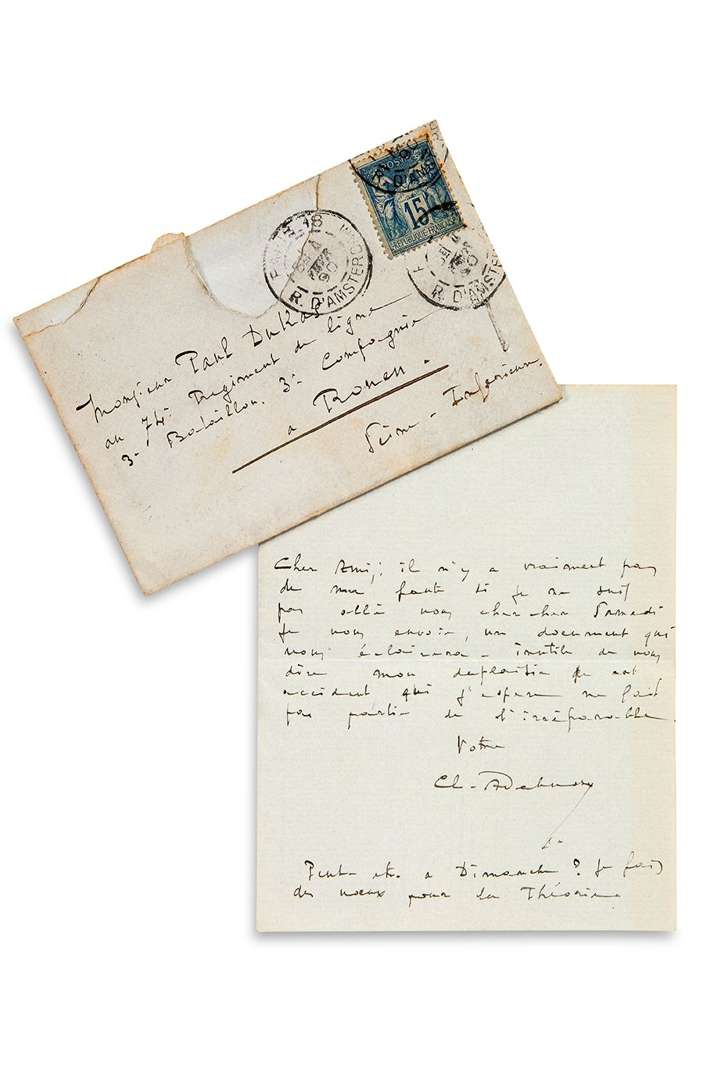 PARIS 18
R. D'AMSTERDAM
90
15
REPUBLIQUE FRANCAISE
R. D'AMSTERDAM
90
Monsieur Paul Dukas
au 74e Regiment de ligne
3e Bataillon. 3e Compagnie
a Rouen.
Seine-Inférieure.
Cher Ami; il n'y a vraiment pas
de ma faute si je ne suis
pas allé vous chercher Samedi
Je vous envoie, un document qui
vous éclairera - inutile de vous
dire mon deplaisir de cet
accident qui j'espere ne fait
pas partie de l'irréparable.
Votre
Cl-ADebussy
Peut-etre a Dimanche? Je fais
des voeux pour la Théorie